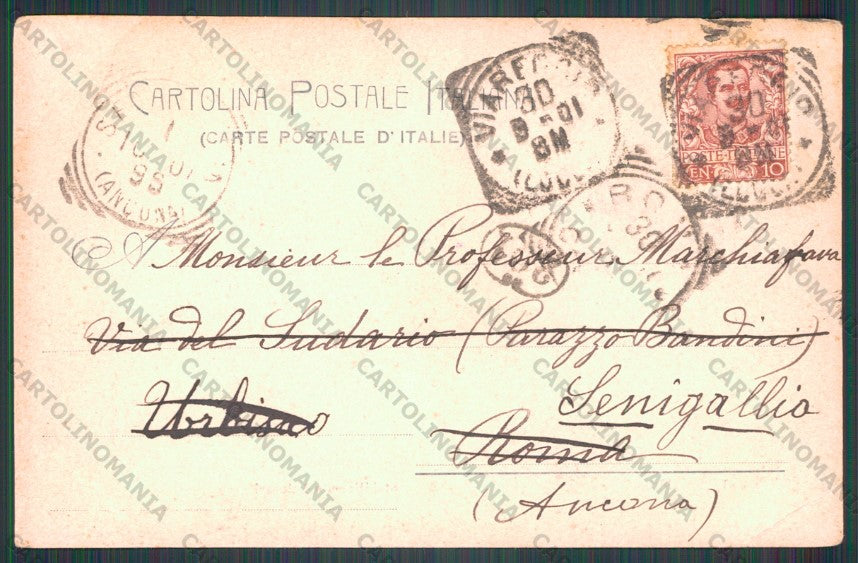 CARTOLINA POSTALE ITALIANA
(CARTE POSTALE D'ITALIE)
VIAREGGIO
30
8-01
8M
(LUCCA)
VIAREGGIO
30
8M
(LUCCA)
POSTE ITALIANE
CENT 10
(ANCONA)
ROMA
30
A Monsieur le Professeur Marchiafava
Via del Sudario (Palazzo Bandini)
Urbisno
Senigallia
Roma
(Ancona)
CARTOLINOMANIA